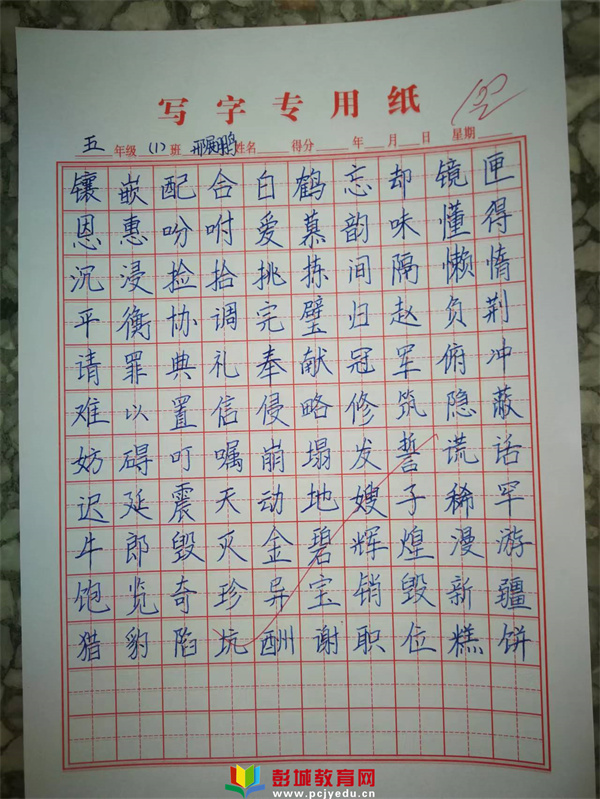 写字专用纸
五年级(1)班 邢展鹏 姓名 得分 年 月 日 星期
镶嵌配合白鹤忘却镜匣
恩惠吩咐爱慕韵味懂得
沉浸捡拾挑拣间隔懒惰
平衡协调完璧归赵负荆
请罪典礼奉献冠军俯冲
难以置信侵略修筑隐蔽
妨碍叮嘱崩塌发誓谎话
迟延震天动地嫂子稀罕
牛郎毁灭金碧辉煌漫游
饱览奇珍异宝销毁新疆
猎豹陷坑酬谢职位糕饼
彭城教育网
www.pcjyedu.cn